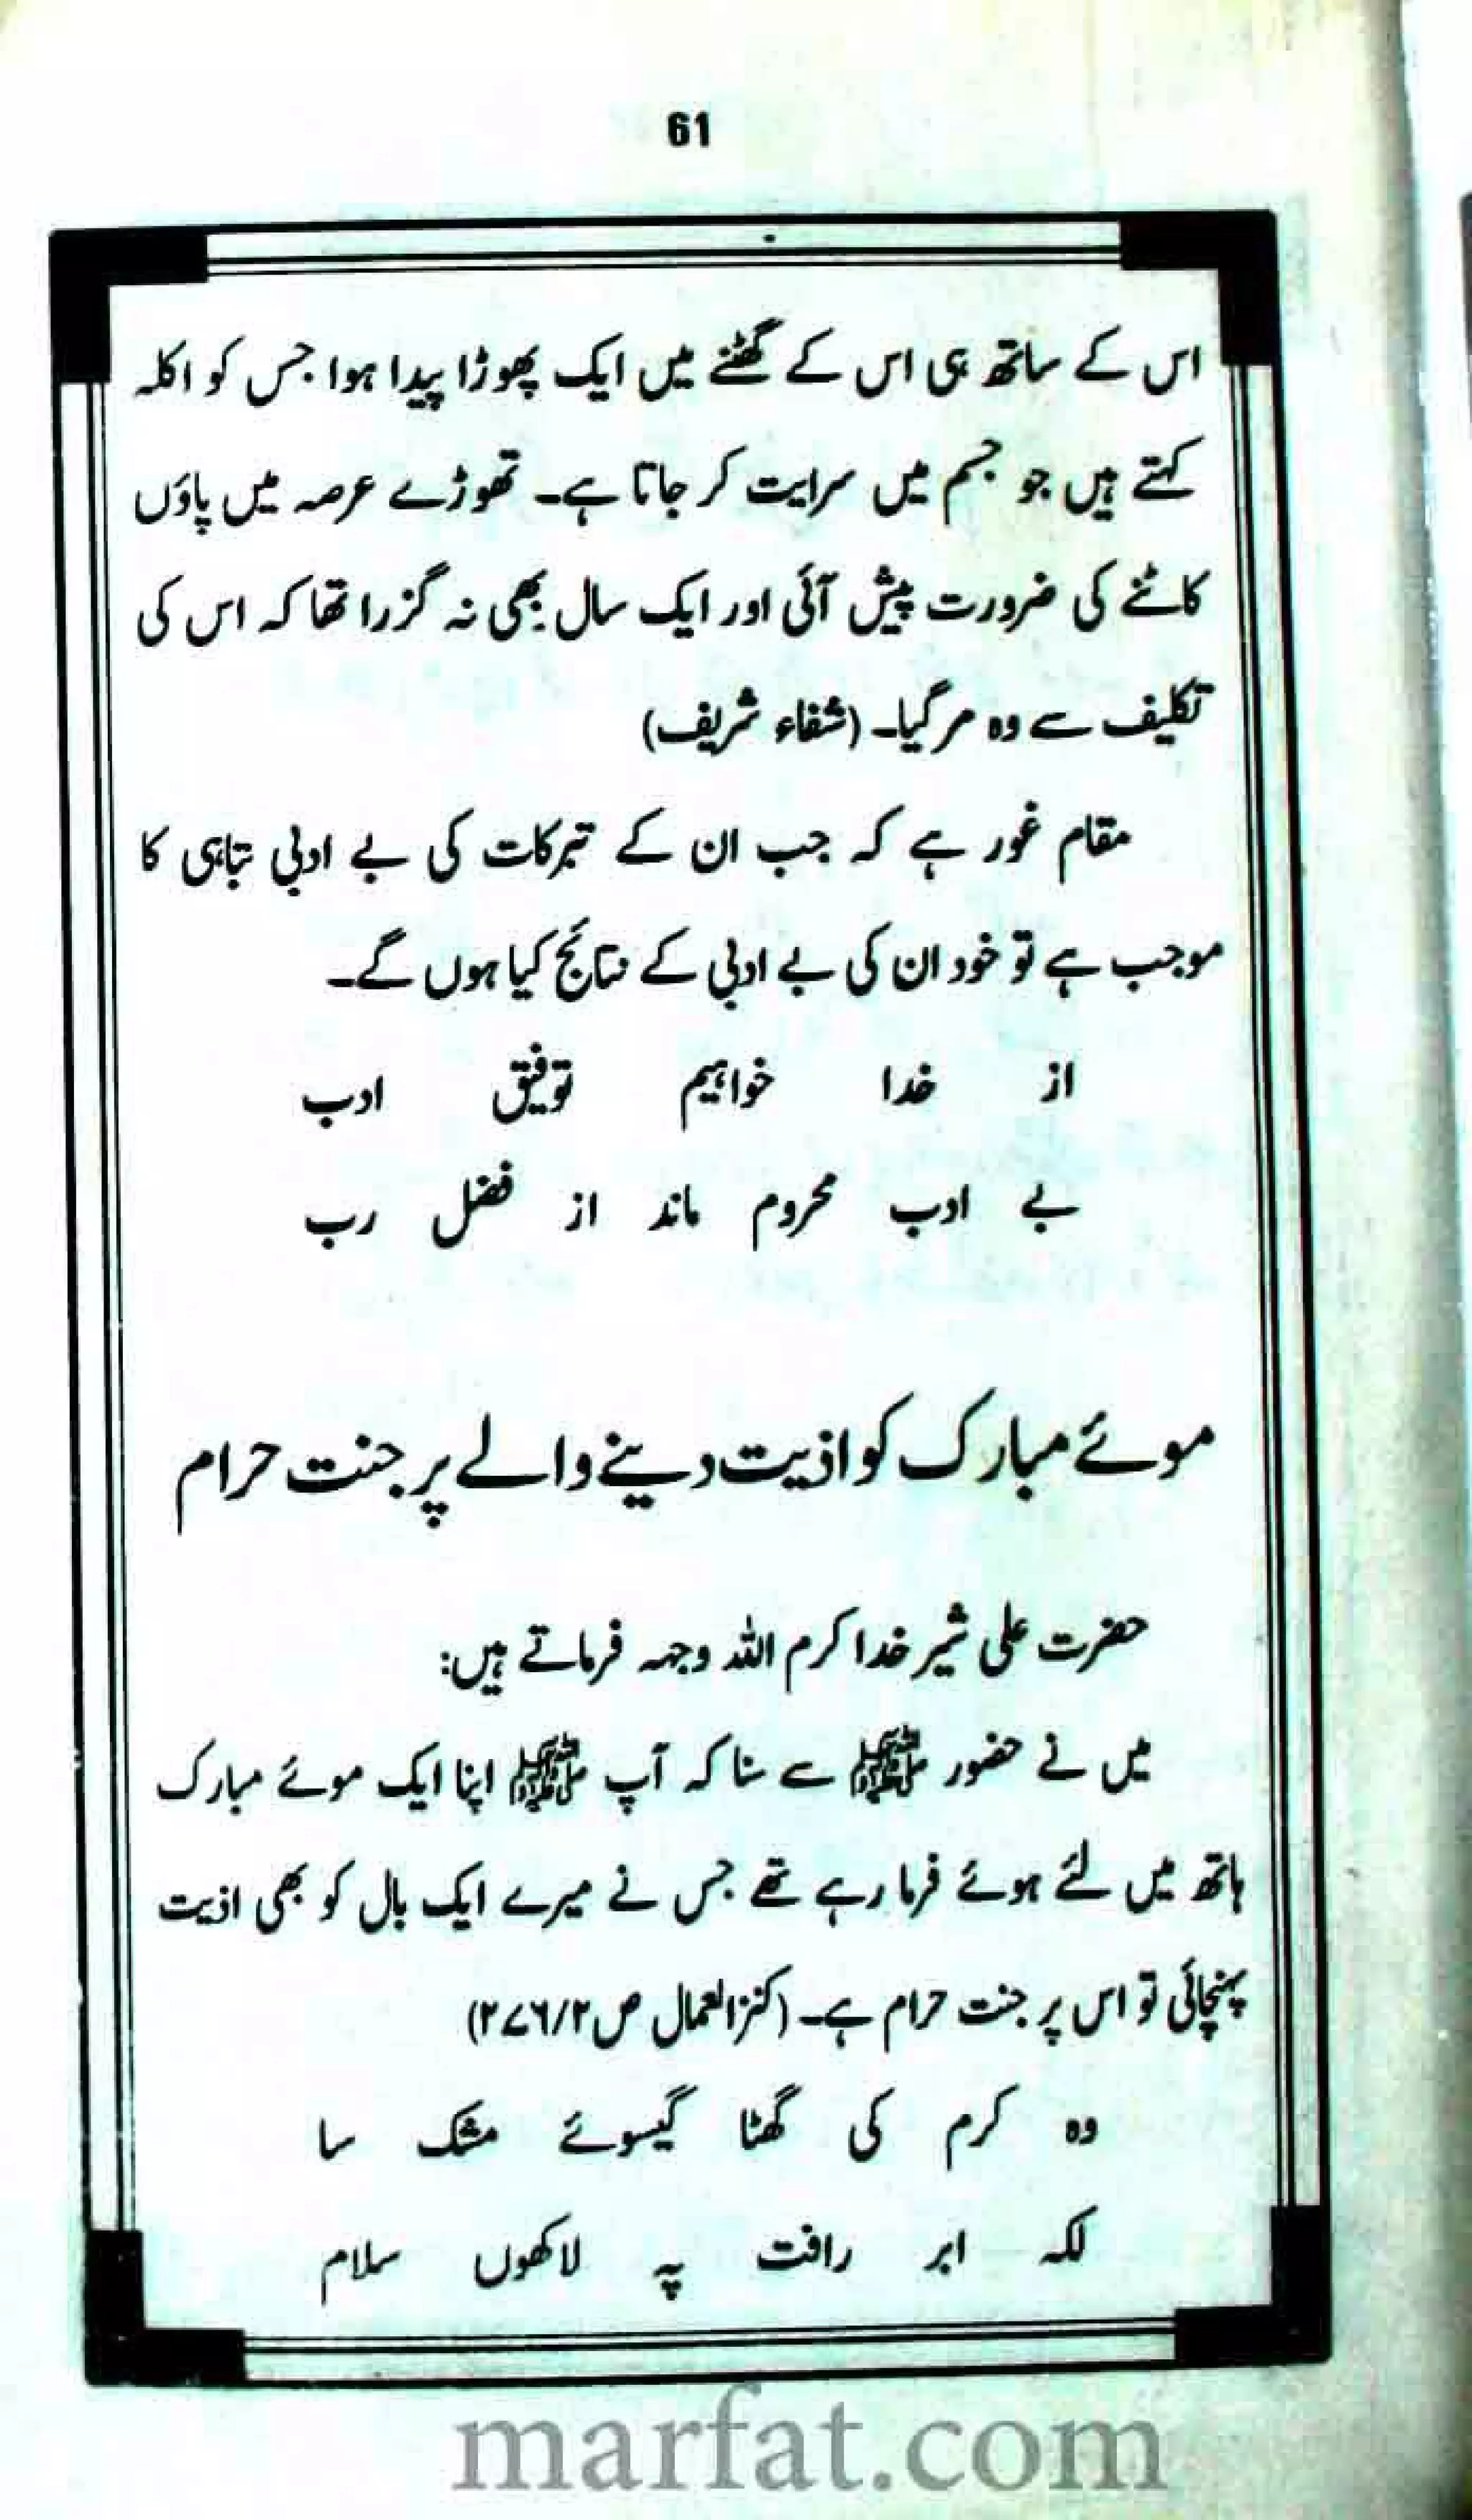 61
اس کے ساتھ ہی اس کے گھٹنے میں ایک پھوڑا پیدا ہوا جس کو اکلہ
کہتے ہیں جو جسم میں سرایت کر جاتا ہے۔ تھوڑے عرصہ میں پاؤں
کاٹنے کی ضرورت پیش آئی اور ایک سال بھی نہ گزرا تھا کہ اس کی
تکلیف سے وہ مر گیا۔ (شفاء شریف)
مقام غور ہے کہ جب ان کے تبرکات کی بے ادبی تباہی کا
موجب ہے تو خود ان کی بے ادبی کے نتائج کیا ہوں گے۔
از خدا خواہیم توفیق ادب
بے ادب محروم ماند از فضل رب
موئے مبارک کو اذیت دینے والے پر جنت حرام
حضرت علی شیر خدا کرم اللہ وجہہ فرماتے ہیں:
میں نے حضور ﷺ سے سنا کہ آپ ﷺ اپنا ایک موئے مبارک
ہاتھ میں لئے ہوئے فرما رہے تھے جس نے میرے ایک بال کو بھی اذیت
پہنچائی تو اس پر جنت حرام ہے۔ (کنز العمال ص۲/۲۷۶)
وہ کرم کی گھٹا گیسوئے مشک سا
لکہ ابر رافت پہ لاکھوں سلام
marfat.com